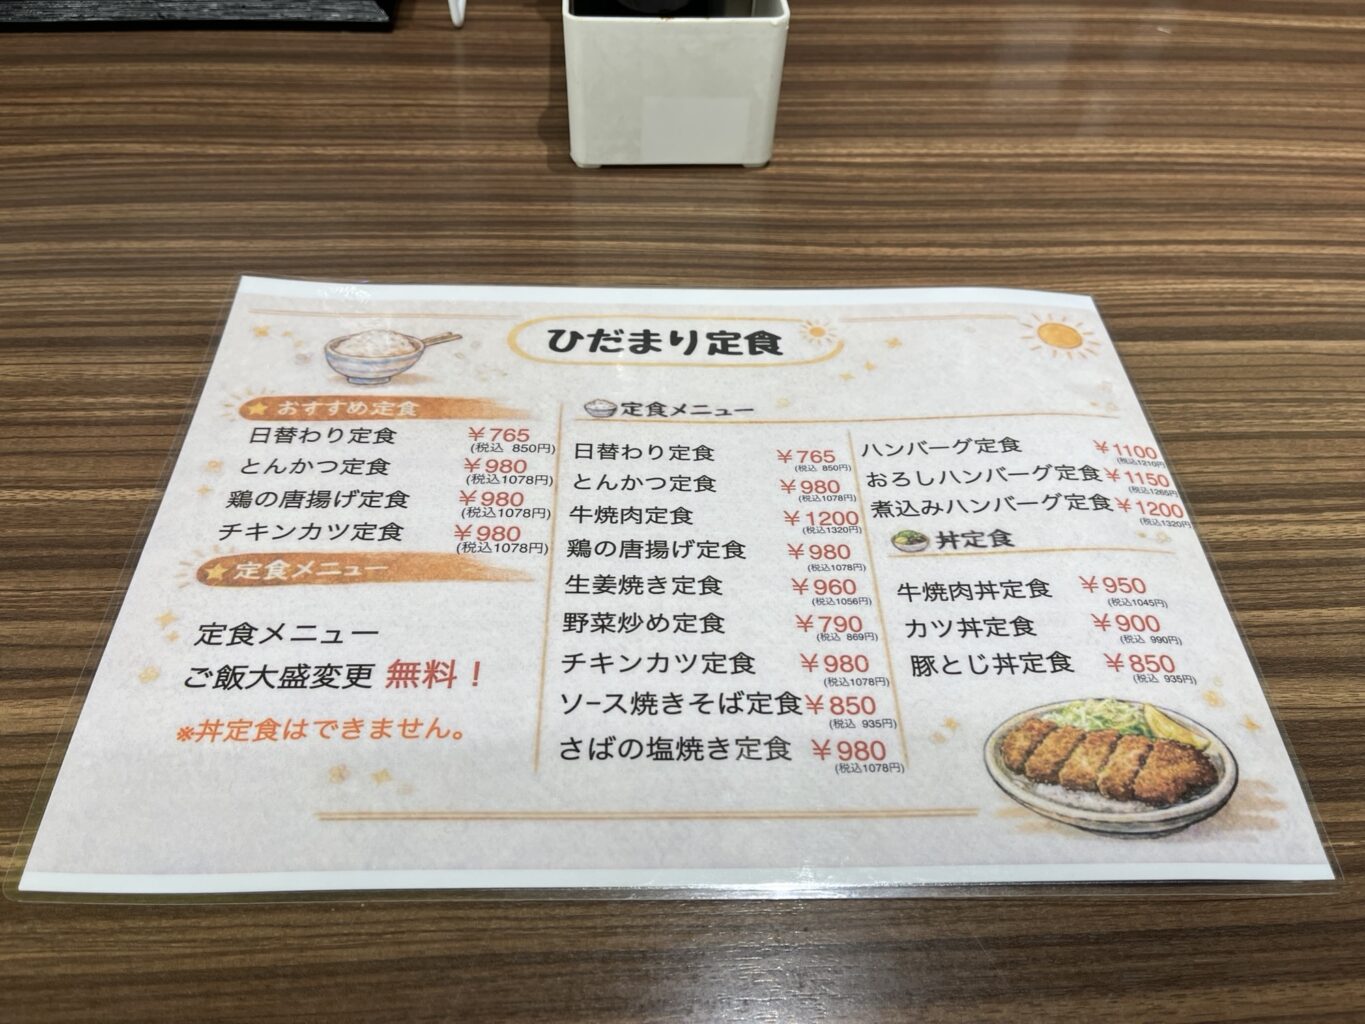 ひだまり定食
おすすめ定食
日替わり定食 ￥765
(税込 850円)
とんかつ定食 ￥980
(税込1078円)
鶏の唐揚げ定食 ￥980
(税込1078円)
チキンカツ定食 ￥980
(税込1078円)
定食メニュー
定食メニュー
ご飯大盛変更 無料！
※丼定食はできません。
定食メニュー
日替わり定食 ￥765
(税込 850円)
とんかつ定食 ￥980
(税込1078円)
牛焼肉定食 ￥1200
(税込1320円)
鶏の唐揚げ定食 ￥980
(税込1078円)
生姜焼き定食 ￥960
(税込1056円)
野菜炒め定食 ￥790
(税込 869円)
チキンカツ定食 ￥980
(税込1078円)
ソース焼きそば定食 ￥850
(税込 935円)
さばの塩焼き定食 ￥980
(税込1078円)
ハンバーグ定食 ￥1100
(税込1210円)
おろしハンバーグ定食 ￥1150
(税込1265円)
煮込みハンバーグ定食 ￥1200
(税込1320円)
丼定食
牛焼肉丼定食 ￥950
(税込1045円)
カツ丼定食 ￥900
(税込 990円)
豚とじ丼定食 ￥850
(税込 935円)